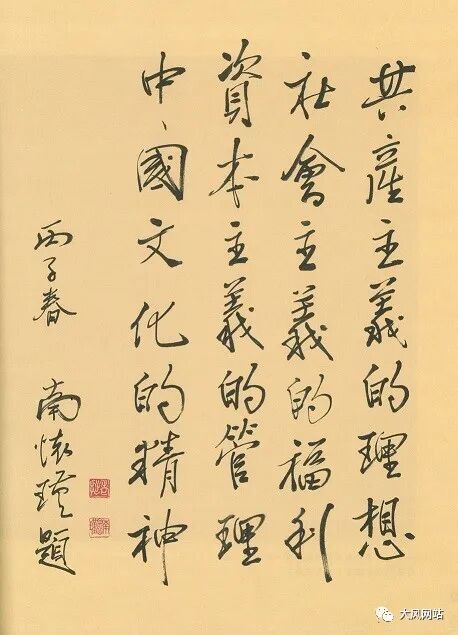 共產主義的理想
社會主義的福利
資本主義的管理
中國文化的精神
丙子春 南懷瑾題
大风网站